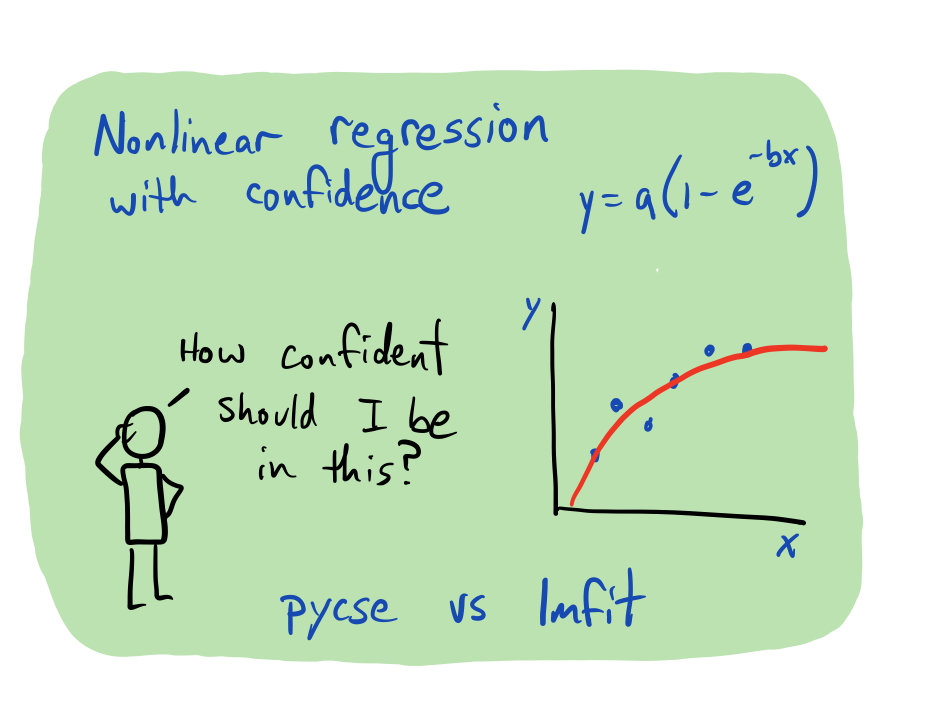 Nonlinear regression
with confidence
y = a(1 - e^{-bx})
How confident
should I be
in this?
y
x
pycse vs lmfit